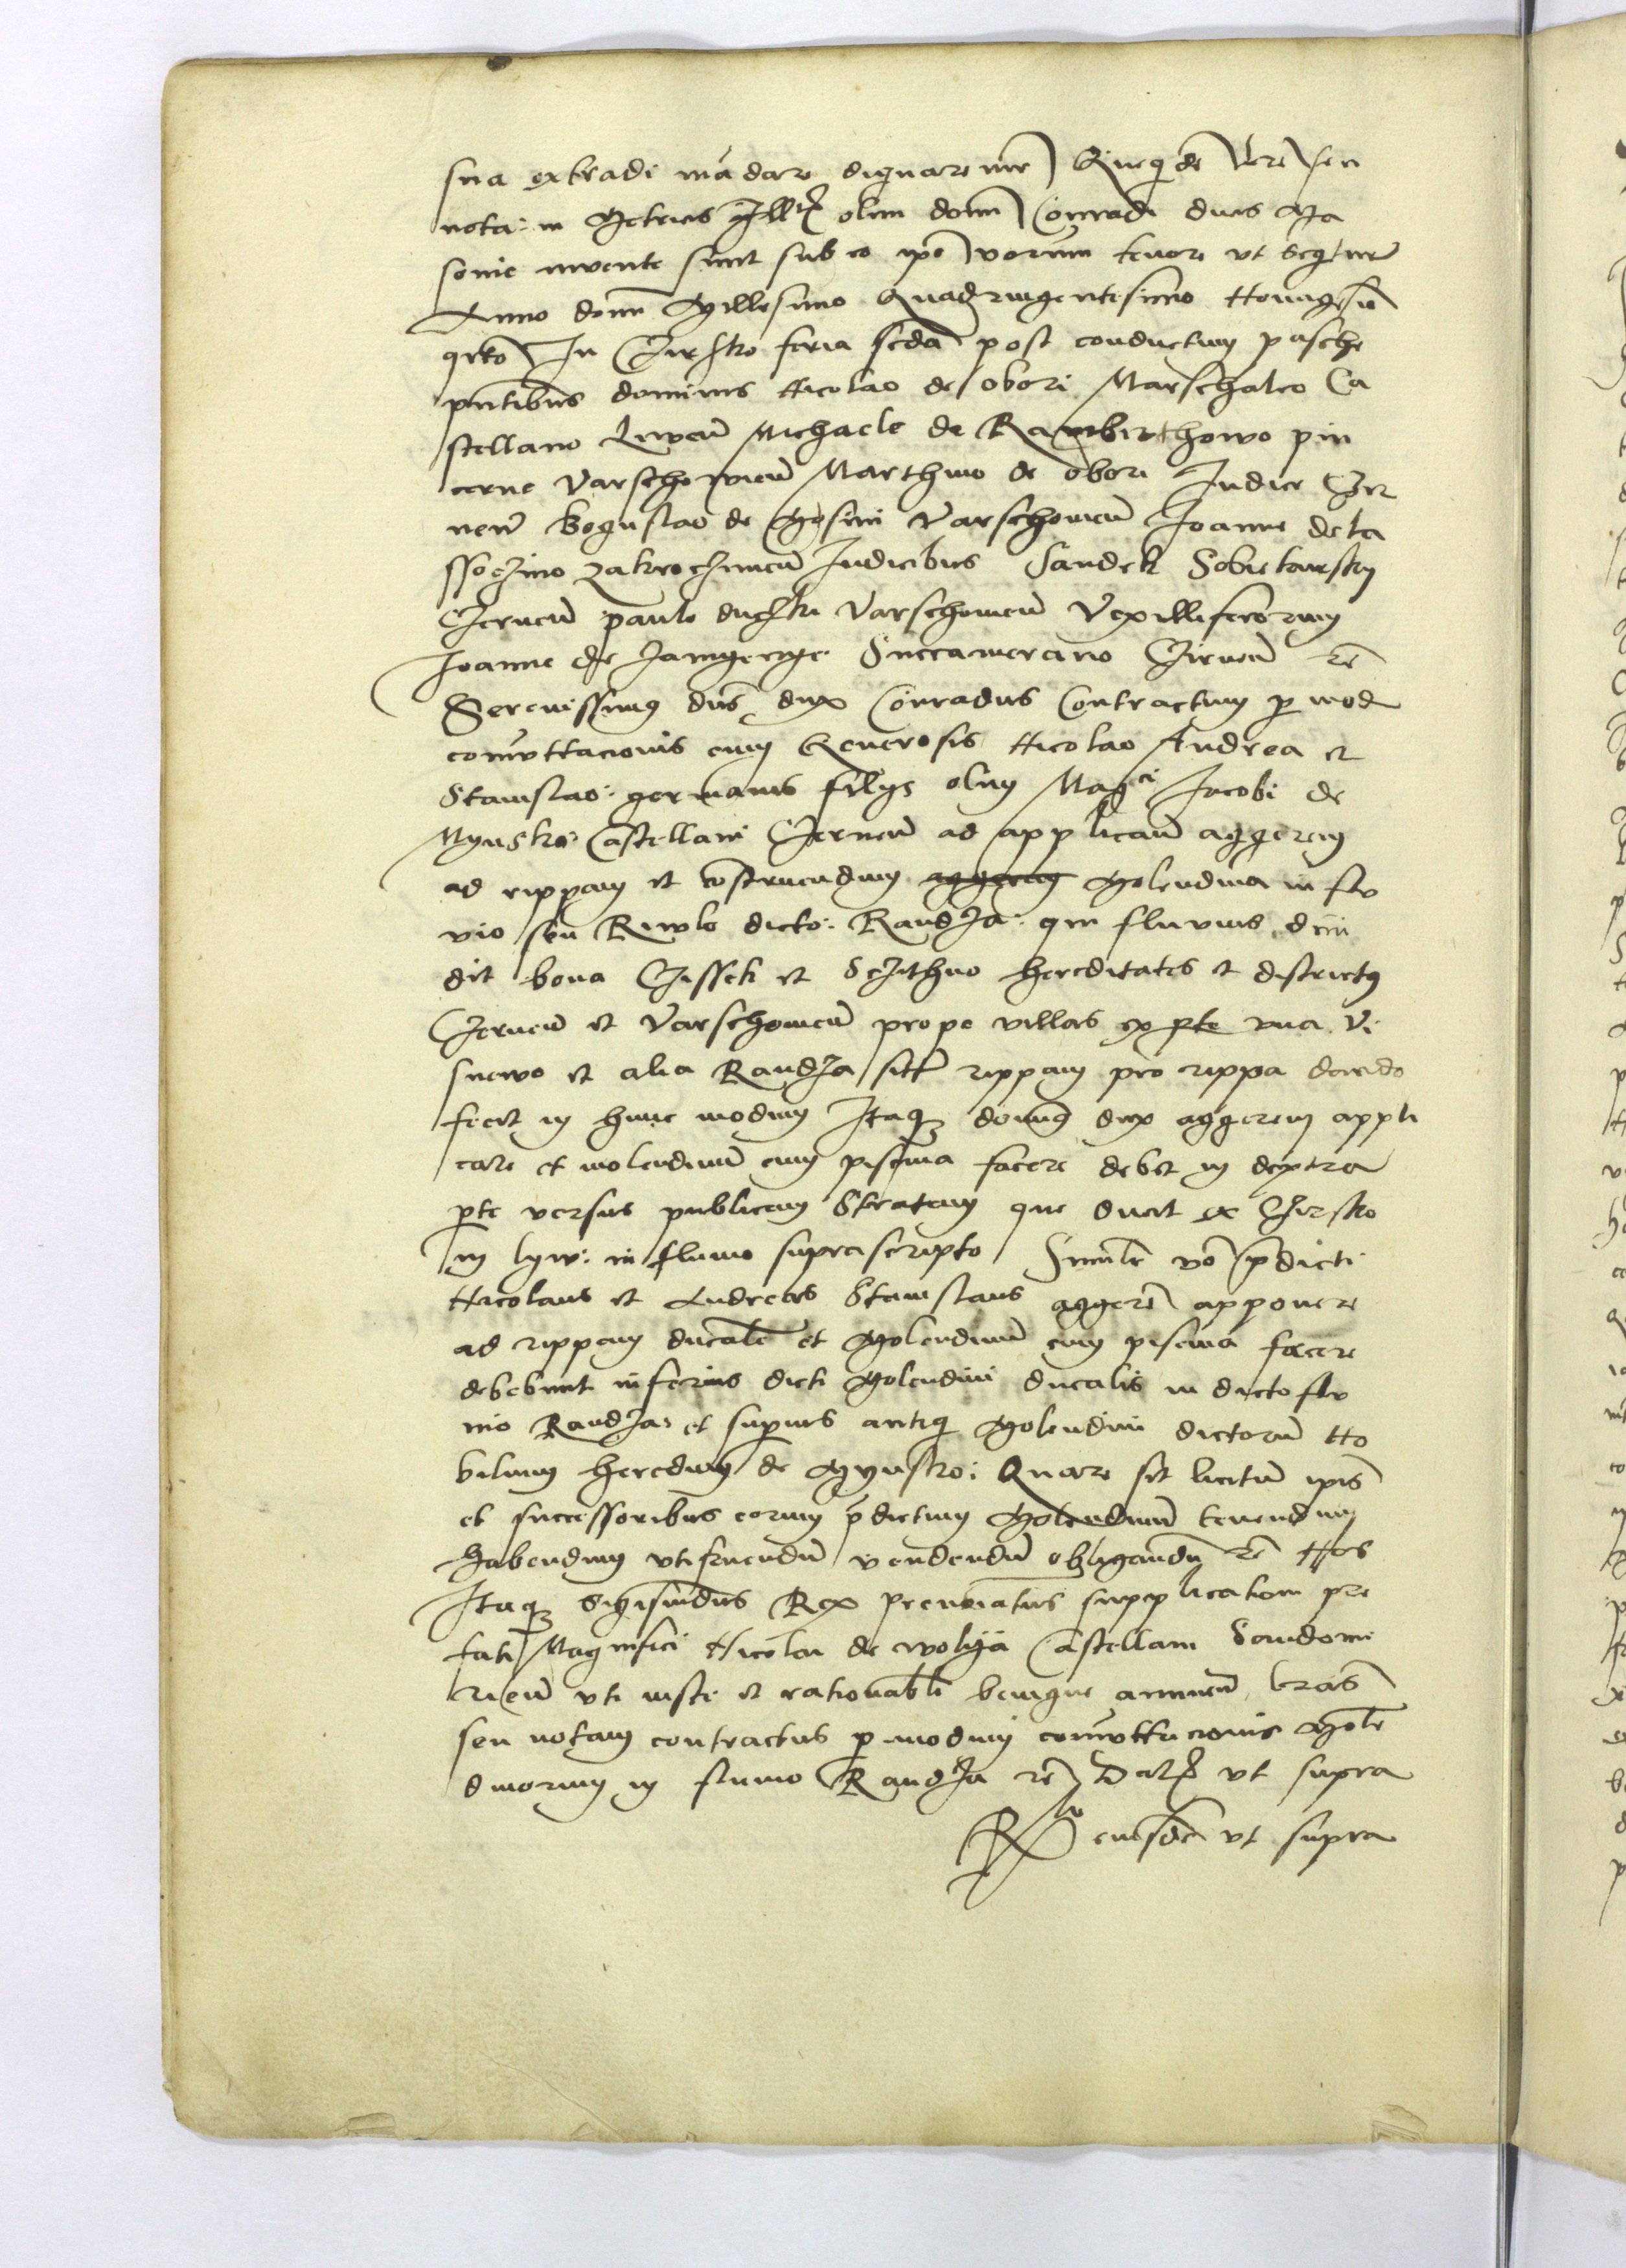 sua extradi mādare dignaremur Que quidē lrē seu
nota: in Metricis Illr̄ olim domī Conradi ducis Ma
sovie invente sunt sub eo ipō verum tenore ut seqtur
Anno domī Millesimo Quadringentesimo Nonagesīō
qrto In Cirsko feria scdā post conductum pasche
pn̄tibus dominis Nicolao de Obori Marschalco Ca
stellano Liveñ Michaele de Rambirthowo pin
cerne Varschovieñ Marthino de obori Judice Cir
neñ Boguslao de Mosini Varschovieñ Joanne de la
ssoczino Zakroczimeñ Judicibus Sandek Sobiekurski
Czerneñ paulo duczki Varschovieñ Vexilliferorum
Joanne de Jamgerzge Succamerario Czirneñ rē
Serenissimus dn̄s dux Conradus Contractum p mod
com̄uttacionis cum Generosis Nicolao Andrea et
Stanislao: germanis filys olim Magci Jacobi de
Mynsko: Castellani Czerneñ ad applicanū aggerem
ad rippam et costruendum aggerem Molendina in flu
vio seu Rivulo dicto: Randza: qui fluvius divi
dit bona Cisseki et Sczithno hereditates et districtus
Czerneñ et Varschovieñ prope villas ex pte una Vi
snewo et alia Randza sitt rippam pro rippa dando
fecit in hunc modum Itaq; domus dux aggerem appli
care et molendinū cum piscina facere debet in dextra
pte versus publicam Stratam que ducit ex Czirsko
in lyw: in fluvio suprascripto Similr vō pdicti
Nicolaus et Andreas Stanislaus aggerē apponere
ad rippam ducalē et Molendinū cum piscina facere
debebunt inferius dicti Molendini ducalis in dicto flu
vio Randza: et supius antiqi Molendini dictorū No
bilium heredum de Mynsko: Quare sit licitū ipis
et successoribus eorum pdictum Molendinū tenendum
habendum utifruendū vendendū obligandū rē Nos
Itaq; Sigismūdus Rex prenūciatus supplicatiom pre
fati Magnifici Nicolai de wolya Castellani Sandomi
rieñ uti iuste et rationabli benigne annueñ lrās
seu notam contractus p modum com̄uttacionis Mole
dinorum in fluvio Randza rē Datz ut supra
Rlō eiusdē ut supra